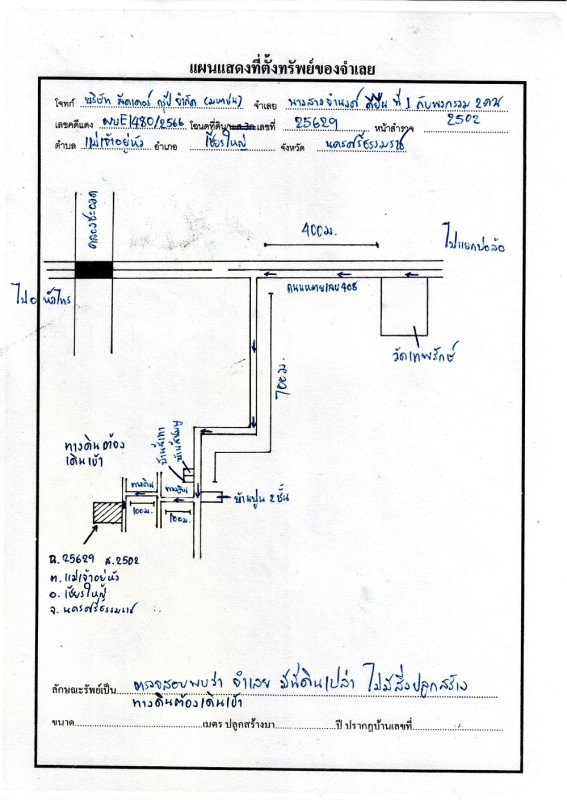 แผนแสดงที่ตั้งทรัพย์ของจำเลย
โจทก์ บริษัท ลีดเดอร์ กรุ๊ป จำกัด (มหาชน) จำเลย นางสาวจำนงค์ ที่ 1 กับพวกรวม 2 คน
เลขคดีแดง ผบE1480/2566 โฉนดที่ดิน เลขที่ 25629 หน้าสำรวจ 2502
ตำบล แม่เจ้าอยู่หัว อำเภอ เชียรใหญ่ จังหวัด นครศรีธรรมราช
คลองชะอวด
400ม.
ไปแยกบ่อล้อ
ไป อ.หัวไทร
ถนนหมายเลข 408
วัดเทพรักษ์
700ม.
ทางดินต้อง
เดินเข้า
บ้านสีเทา
บ้านสีชมพู
ทางดิน
ทางดิน
100ม.
100ม.
บ้านปูน 2 ชั้น
ฉ.25629 ส.2502
ต.แม่เจ้าอยู่หัว
อ.เชียรใหญ่
จ.นครศรีธรรมราช
ลักษณะทรัพย์เป็น ตรวจสอบพบว่า จำเลย มีที่ดินเปล่า ไม่มีสิ่งปลูกสร้าง
ทางดินต้องเดินเข้า
ขนาด เมตร ปลูกสร้างมา ปี ปรากฏบ้านเลขที่